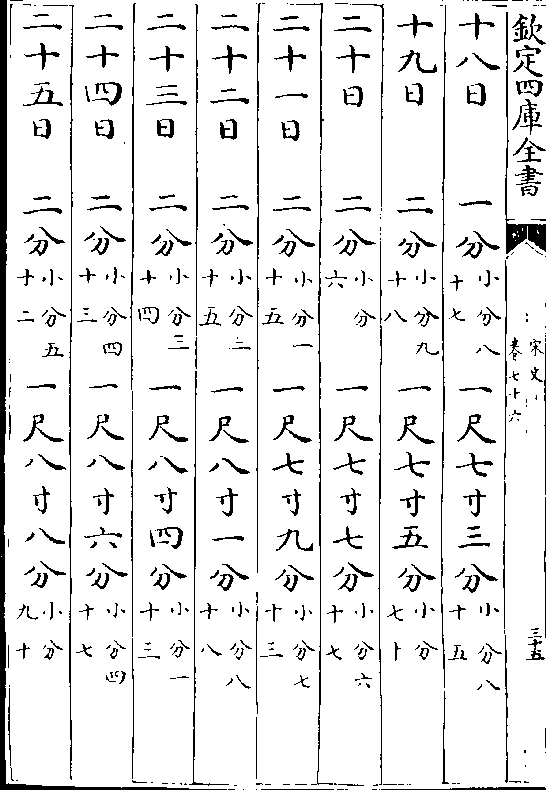 欽定四庫全書
宋史
卷七十六
三十五
十八日 一分小分八十七 一尺七寸三分小分八十五
十九日 二分小分九十八 一尺七寸五分小分七十
二十日 二分小分六 一尺七寸七分小分六十七
二十一日 二分小分一十五 一尺七寸九分小分七十三
二十二日 二分小分二十五 一尺八寸一分小分八十八
二十三日 二分小分三十四 一尺八寸四分小分一十三
二十四日 二分小分四十三 一尺八寸六分小分四十七
二十五日 二分小分五十二 一尺八寸八分小分九十